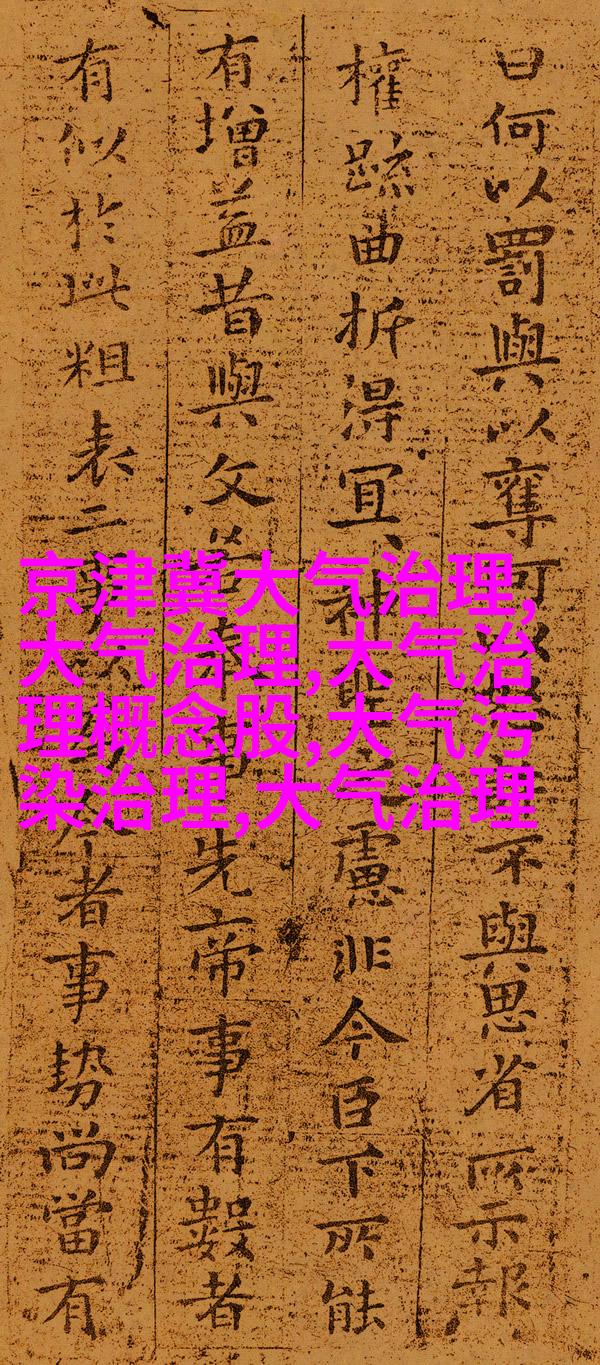 曰何以罰與以奪可不與思省所示報
權疏曲折得宜神慮非今臣下所能
有增益昔與文若事先帝事有數者
有似於此粗表二今者事勢尚當有
京津冀大气治理,
大气治理,大气治
理概念股,大气污
染治理,大气治理